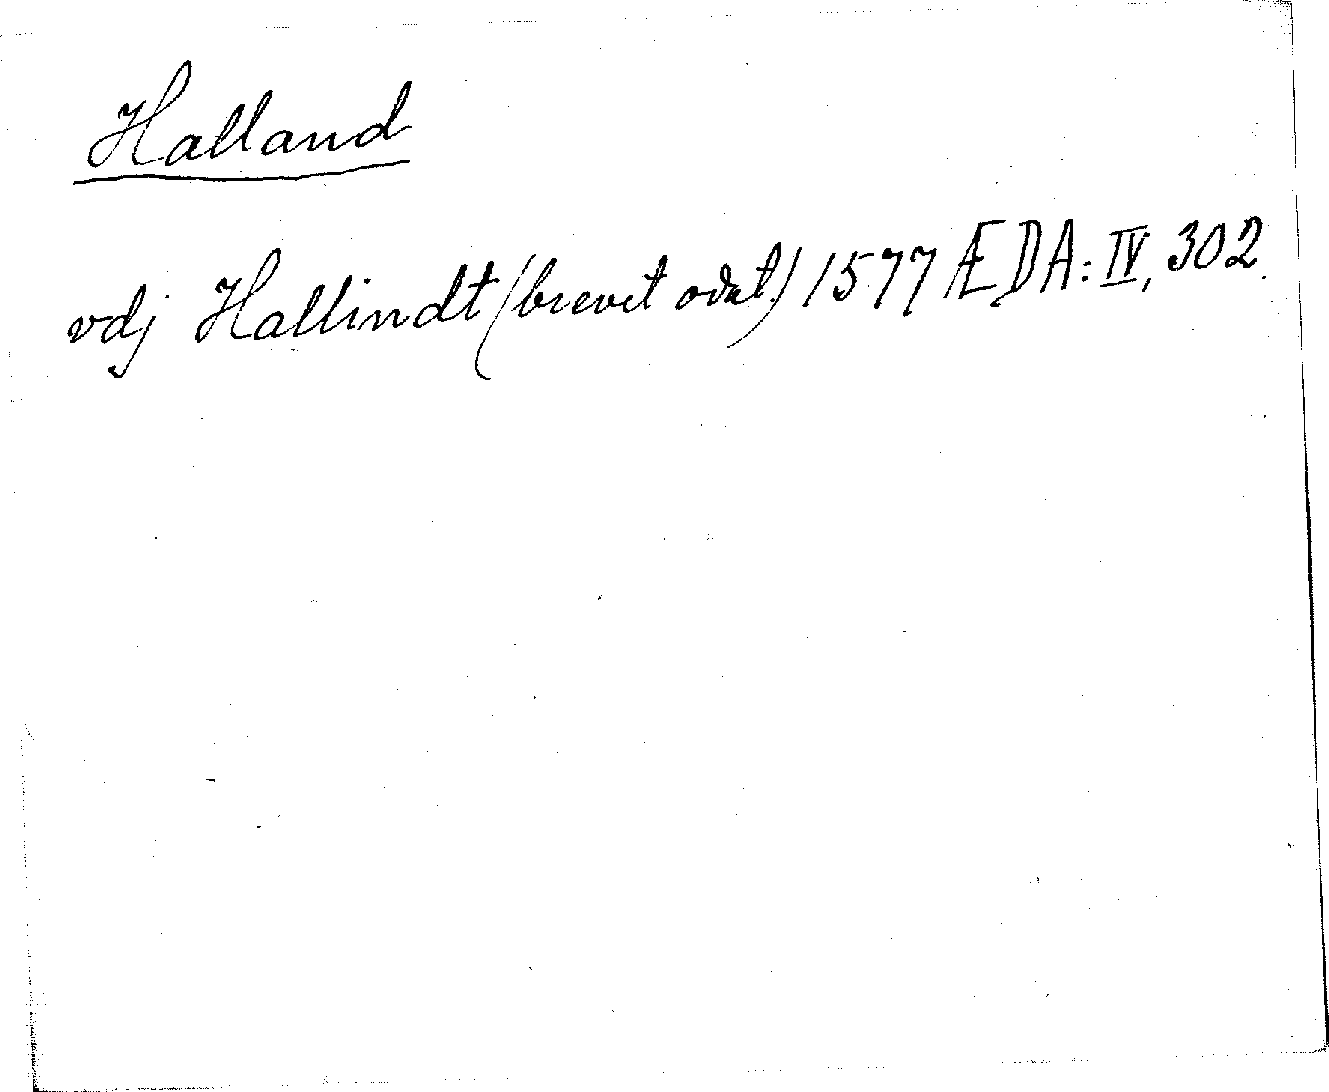 Halland
vdj Hallindt (brevet odat.) 1577 ÆDA: IV, 302.